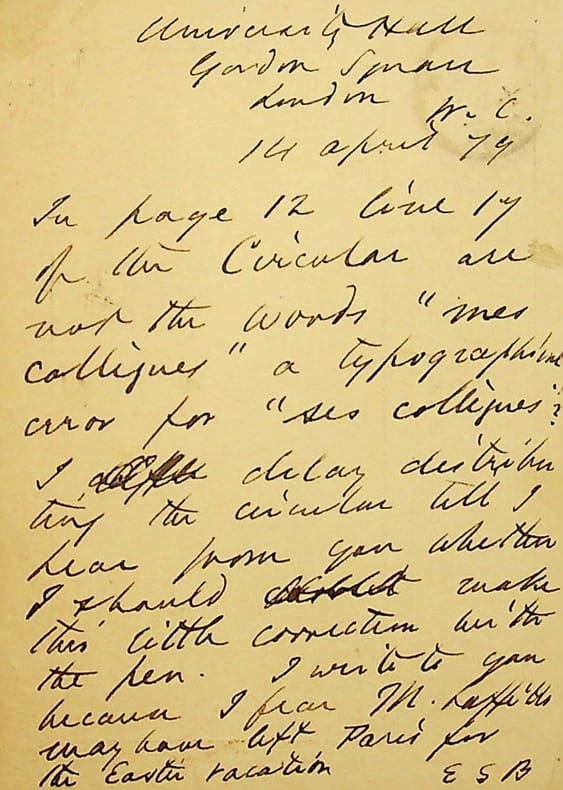 University Hall
Gordon Square
London W.C.
14 April 79
In page 12 line 17
of the Circular are
not the words "mes
collègues" a typographical
error for "ses collègues"?
I delay distribu
ting the circular till I
hear from you whether
I should make
this little correction with
the pen. I write to you
because I fear M. Laffitte
may have left Paris for
the Easter vacation
E S B